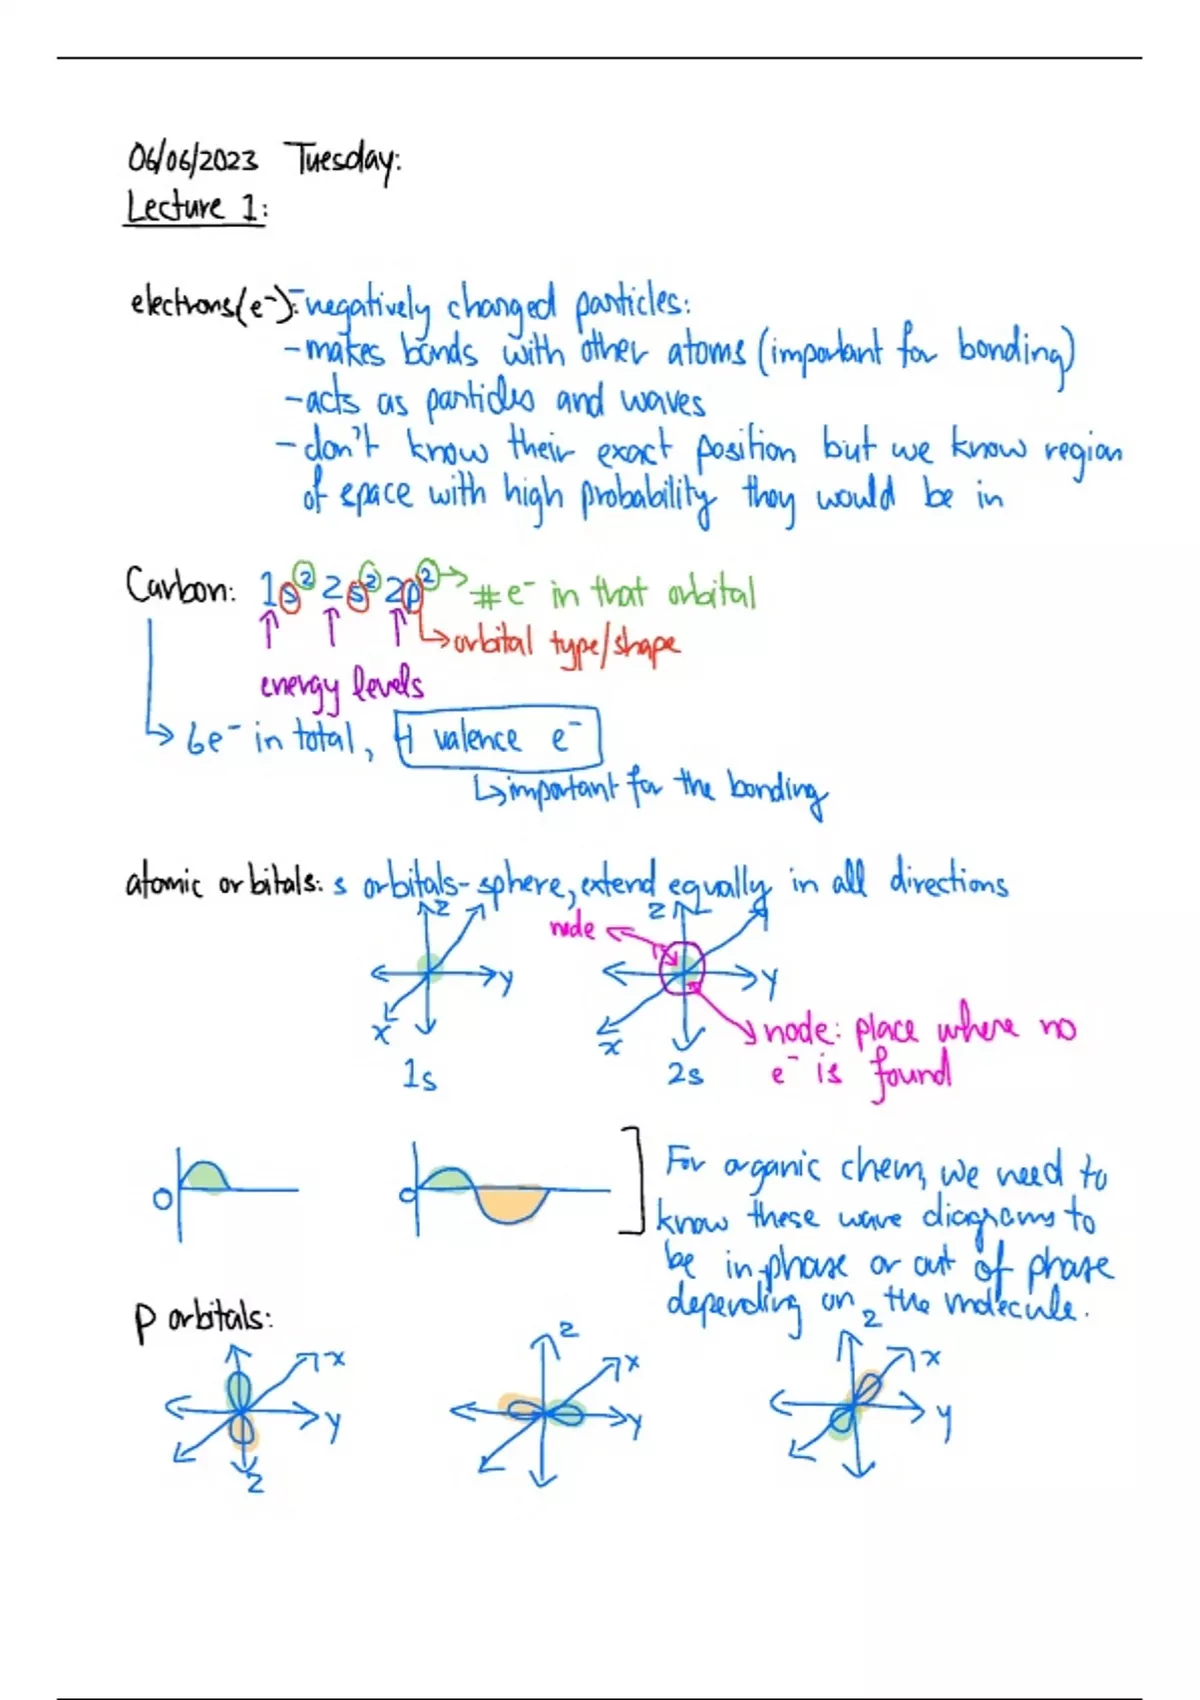 06/06/2023 Tuesday:
Lecture 1:
electrons(e⁻): -negatively changed particles:
-makes bonds with other atoms (important for bonding)
-acts as particles and waves
-don't know their exact position but we know region
of space with high probability they would be in
Carbon: 1s² 2s² 2p² → # e⁻ in that orbital
↳ orbital type/shape
energy levels
↳ 6e⁻ in total, 4 valence e⁻
↳ important for the bonding
atomic orbitals: s orbitals - sphere, extend equally in all directions
z node z
y y
x x node: place where no
1s 2s e⁻ is found
0 0 For organic chem, we need to
know these wave diagrams to
be in-phase or out of phase
depending on the molecule.
p orbitals:
z z
x x x
y y y
z